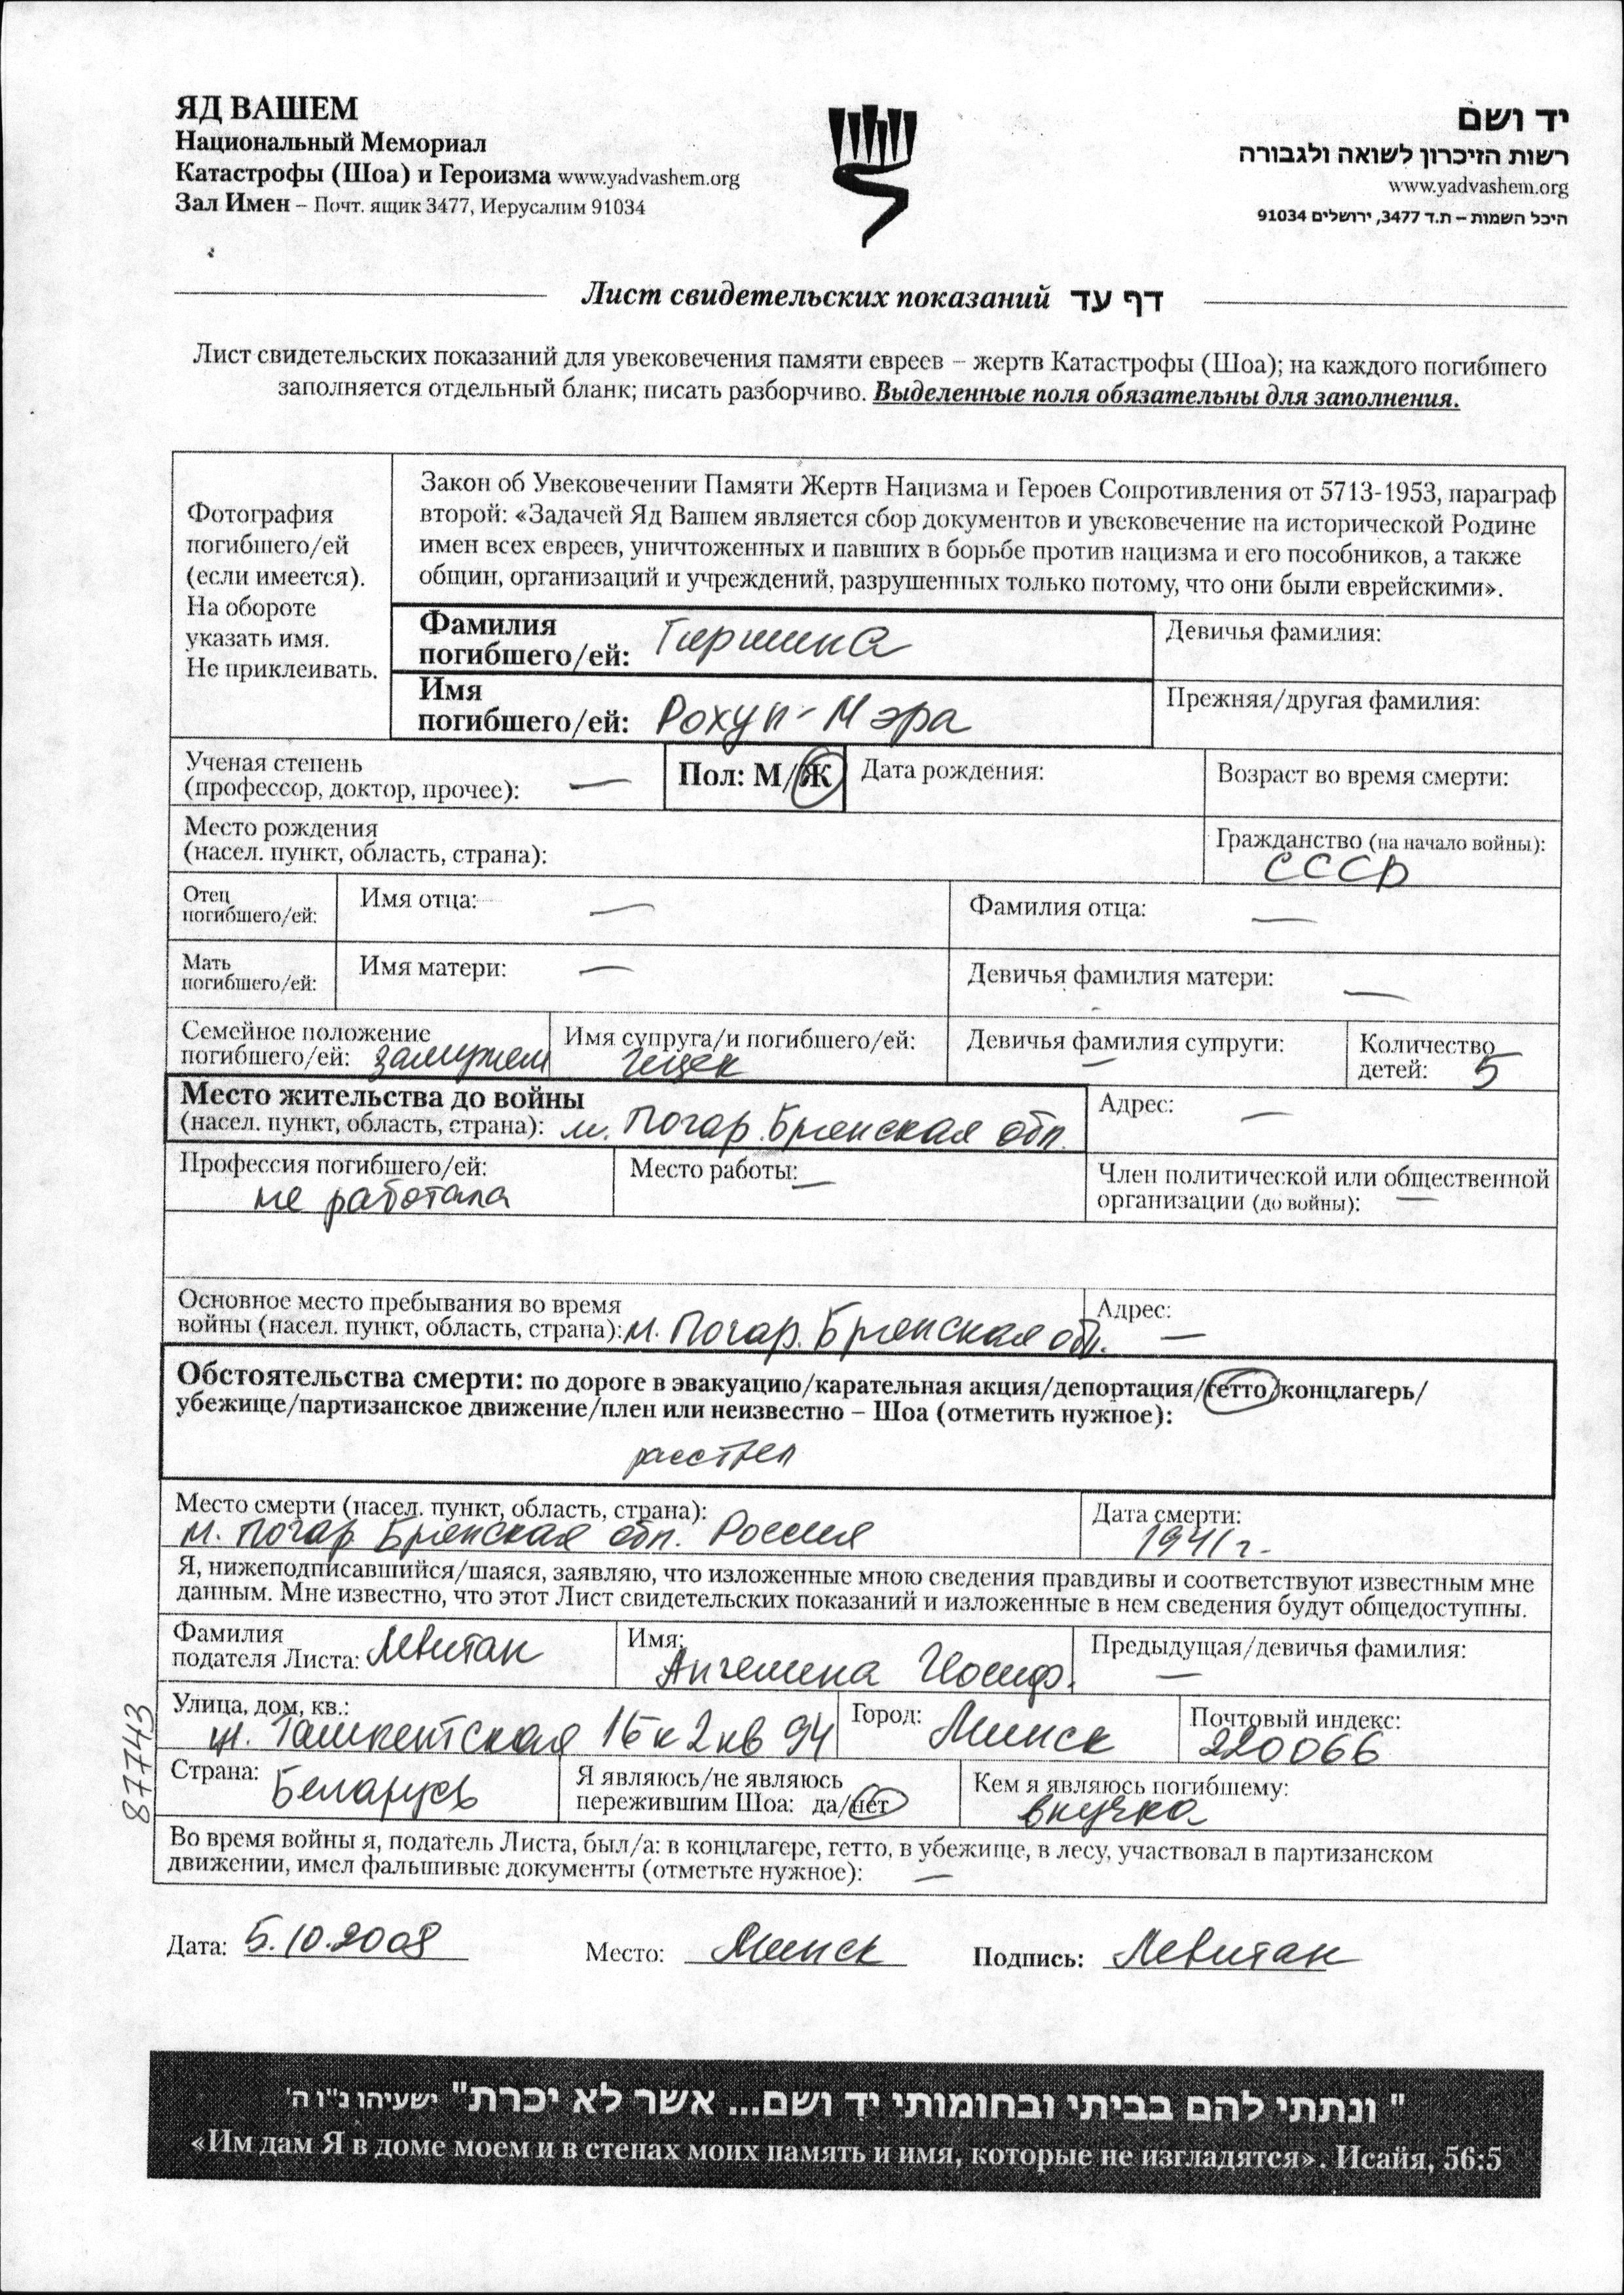 ЯД ВАШЕМ
Национальный Мемориал
Катастрофы (Шоа) и Героизма www.yadvashem.org
Зал Имен – Почт. ящик 3477, Иерусалим 91034
יד ושם
רשות הזיכרון לשואה ולגבורה
www.yadvashem.org
היכל השמות – ת.ד 3477, ירושלים 91034
Лист свидетельских показаний דף עד
Лист свидетельских показаний для увековечения памяти евреев – жертв Катастрофы (Шоа); на каждого погибшего
заполняется отдельный бланк; писать разборчиво. Выделенные поля обязательны для заполнения.
Фотография
погибшего/ей
(если имеется).
На обороте
указать имя.
Не приклеивать.
Закон об Увековечении Памяти Жертв Нацизма и Героев Сопротивления от 5713-1953, параграф
второй: «Задачей Яд Вашем является сбор документов и увековечение на исторической Родине
имен всех евреев, уничтоженных и павших в борьбе против нацизма и его пособников, а также
общин, организаций и учреждений, разрушенных только потому, что они были еврейскими».
Фамилия
погибшего/ей:
Девичья фамилия:
Имя
погибшего/ей: Рохул-Мэра
Прежняя/другая фамилия:
Ученая степень
(профессор, доктор, прочее): —
Пол: М/Ж
Дата рождения:
Возраст во время смерти:
Место рождения
(насел. пункт, область, страна):
Гражданство (на начало войны):
СССР
Отец
погибшего/ей:
Имя отца: —
Фамилия отца: —
Мать
погибшего/ей:
Имя матери: —
Девичья фамилия матери: —
Семейное положение
погибшего/ей: замужем
Имя супруга/и погибшего/ей:
Девичья фамилия супруги:
—
Количество
детей: 5
Место жительства до войны
(насел. пункт, область, страна): м. Погар Брянская обл.
Адрес: —
Профессия погибшего/ей:
не работала
Место работы: —
Член политической или общественной
организации (до войны): —
Основное место пребывания во время
войны (насел. пункт, область, страна): м. Погар. Брянская обл.
Адрес: —
Обстоятельства смерти: по дороге в эвакуацию/карательная акция/депортация/гетто/концлагерь/
убежище/партизанское движение/плен или неизвестно – Шоа (отметить нужное):
расстрел
Место смерти (насел. пункт, область, страна):
м. Погар Брянская обл. Россия
Дата смерти:
1941 г.
Я, нижеподписавшийся/шаяся, заявляю, что изложенные мною сведения правдивы и соответствуют известным мне
данным. Мне известно, что этот Лист свидетельских показаний и изложенные в нем сведения будут общедоступны.
Фамилия
подателя Листа: Левитан
Имя:
Ангелина Иосиф.
Предыдущая/девичья фамилия:
—
Улица, дом, кв.:
ул. Ташкентская 16 к 2 кв 94
Город: Минск
Почтовый индекс:
220066
Страна: Беларусь
Я являюсь/не являюсь
пережившим Шоа: да/нет
Кем я являюсь погибшему:
внучка
Во время войны я, податель Листа, был/а: в концлагере, гетто, в убежище, в лесу, участвовал в партизанском
движении, имел фальшивые документы (отметьте нужное): —
87743
Дата: 5.10.2008 Место: Минск Подпись: Левитан
" ונתתי להם בביתי ובחומותי יד ושם... אשר לא יכרת" ישעיהו נ"ו ה'
«Им дам Я в доме моем и в стенах моих память и имя, которые не изгладятся». Исайя, 56:5